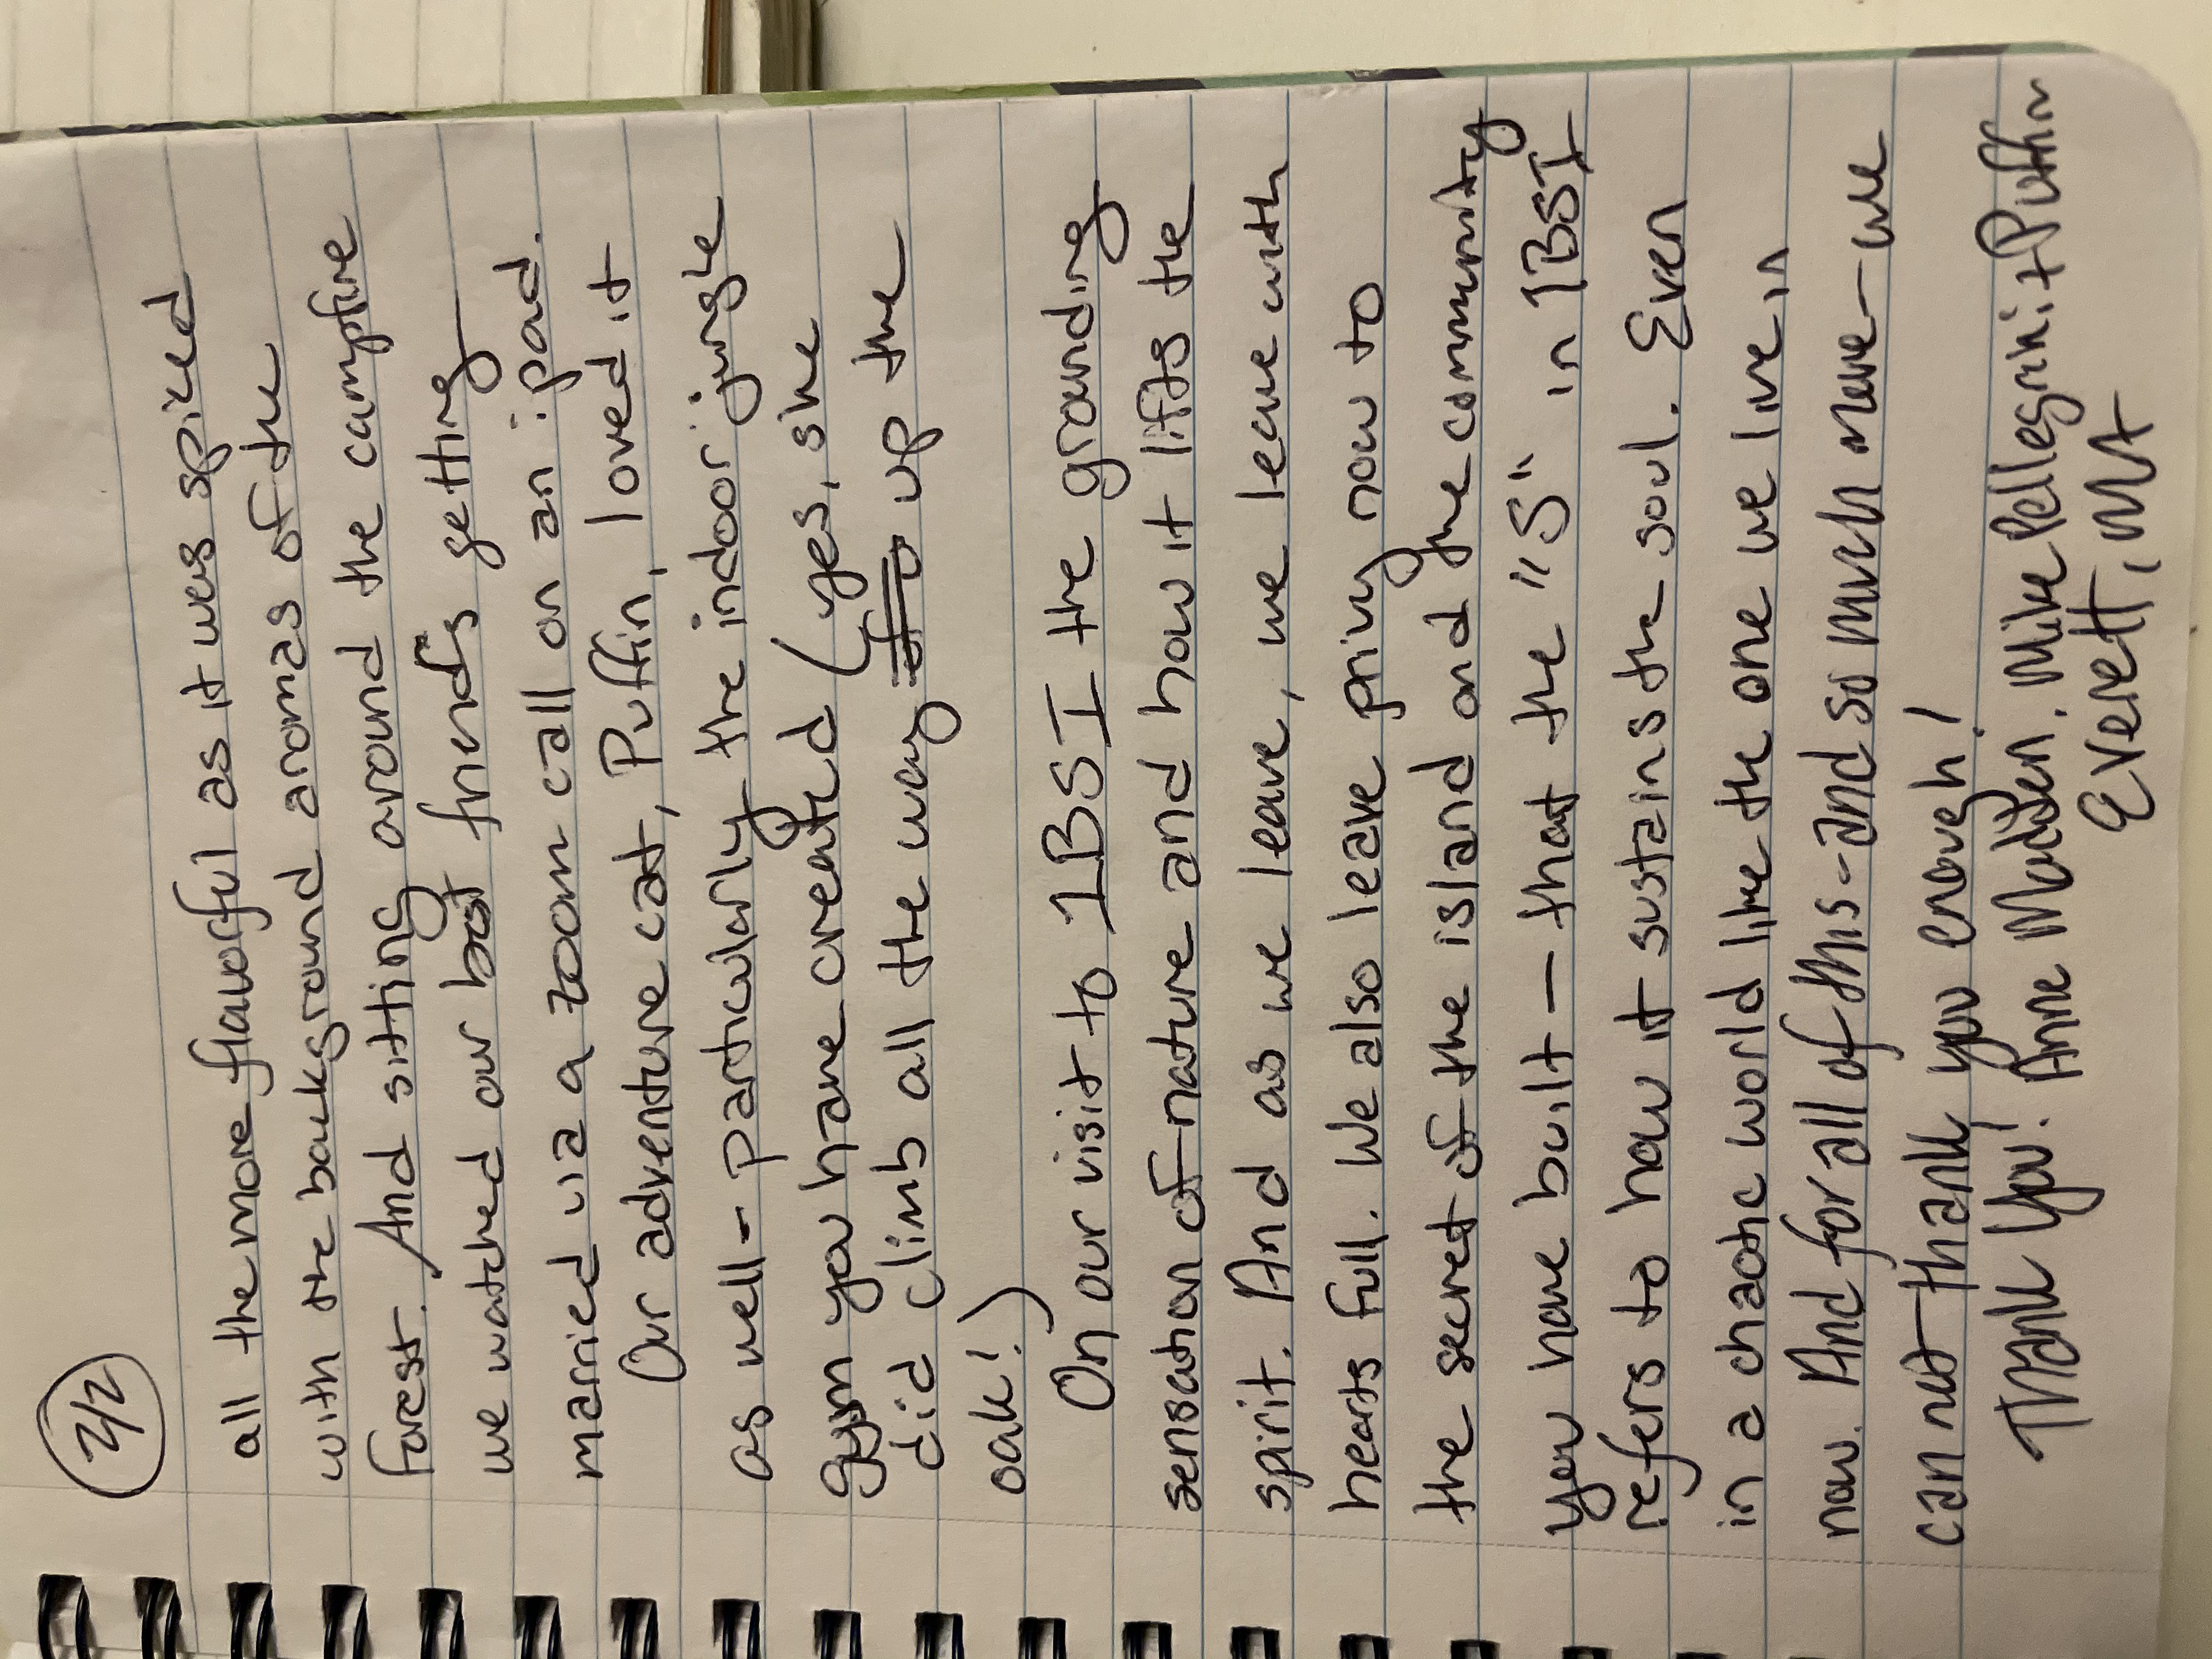 2/2
all the more flavorful as it was spiced
with the background aromas of the
forest. And sitting around the campfire
we watched our best friends getting
married via a zoom call on an ipad.
Our adventure cat, Puffin, loved it
as well - particularly the indoor jungle
gym you have created (yes, she
did climb all the way up the
oak!)
On our visit to IBSI the grounding
sensation of nature and how it lifts the
spirit. And as we leave, we leave with
hearts full. We also leave privy now to
the secret of the island and the community
you have built - that the "S" in IBSI
refers to how it sustains the soul. Even
in a chaotic world like the one we live in
now. And for all of this - and so much more - we
can not thank you enough!
Thank you! Anne Madden, Mike Pellegrini + Puffin
Everett, MA